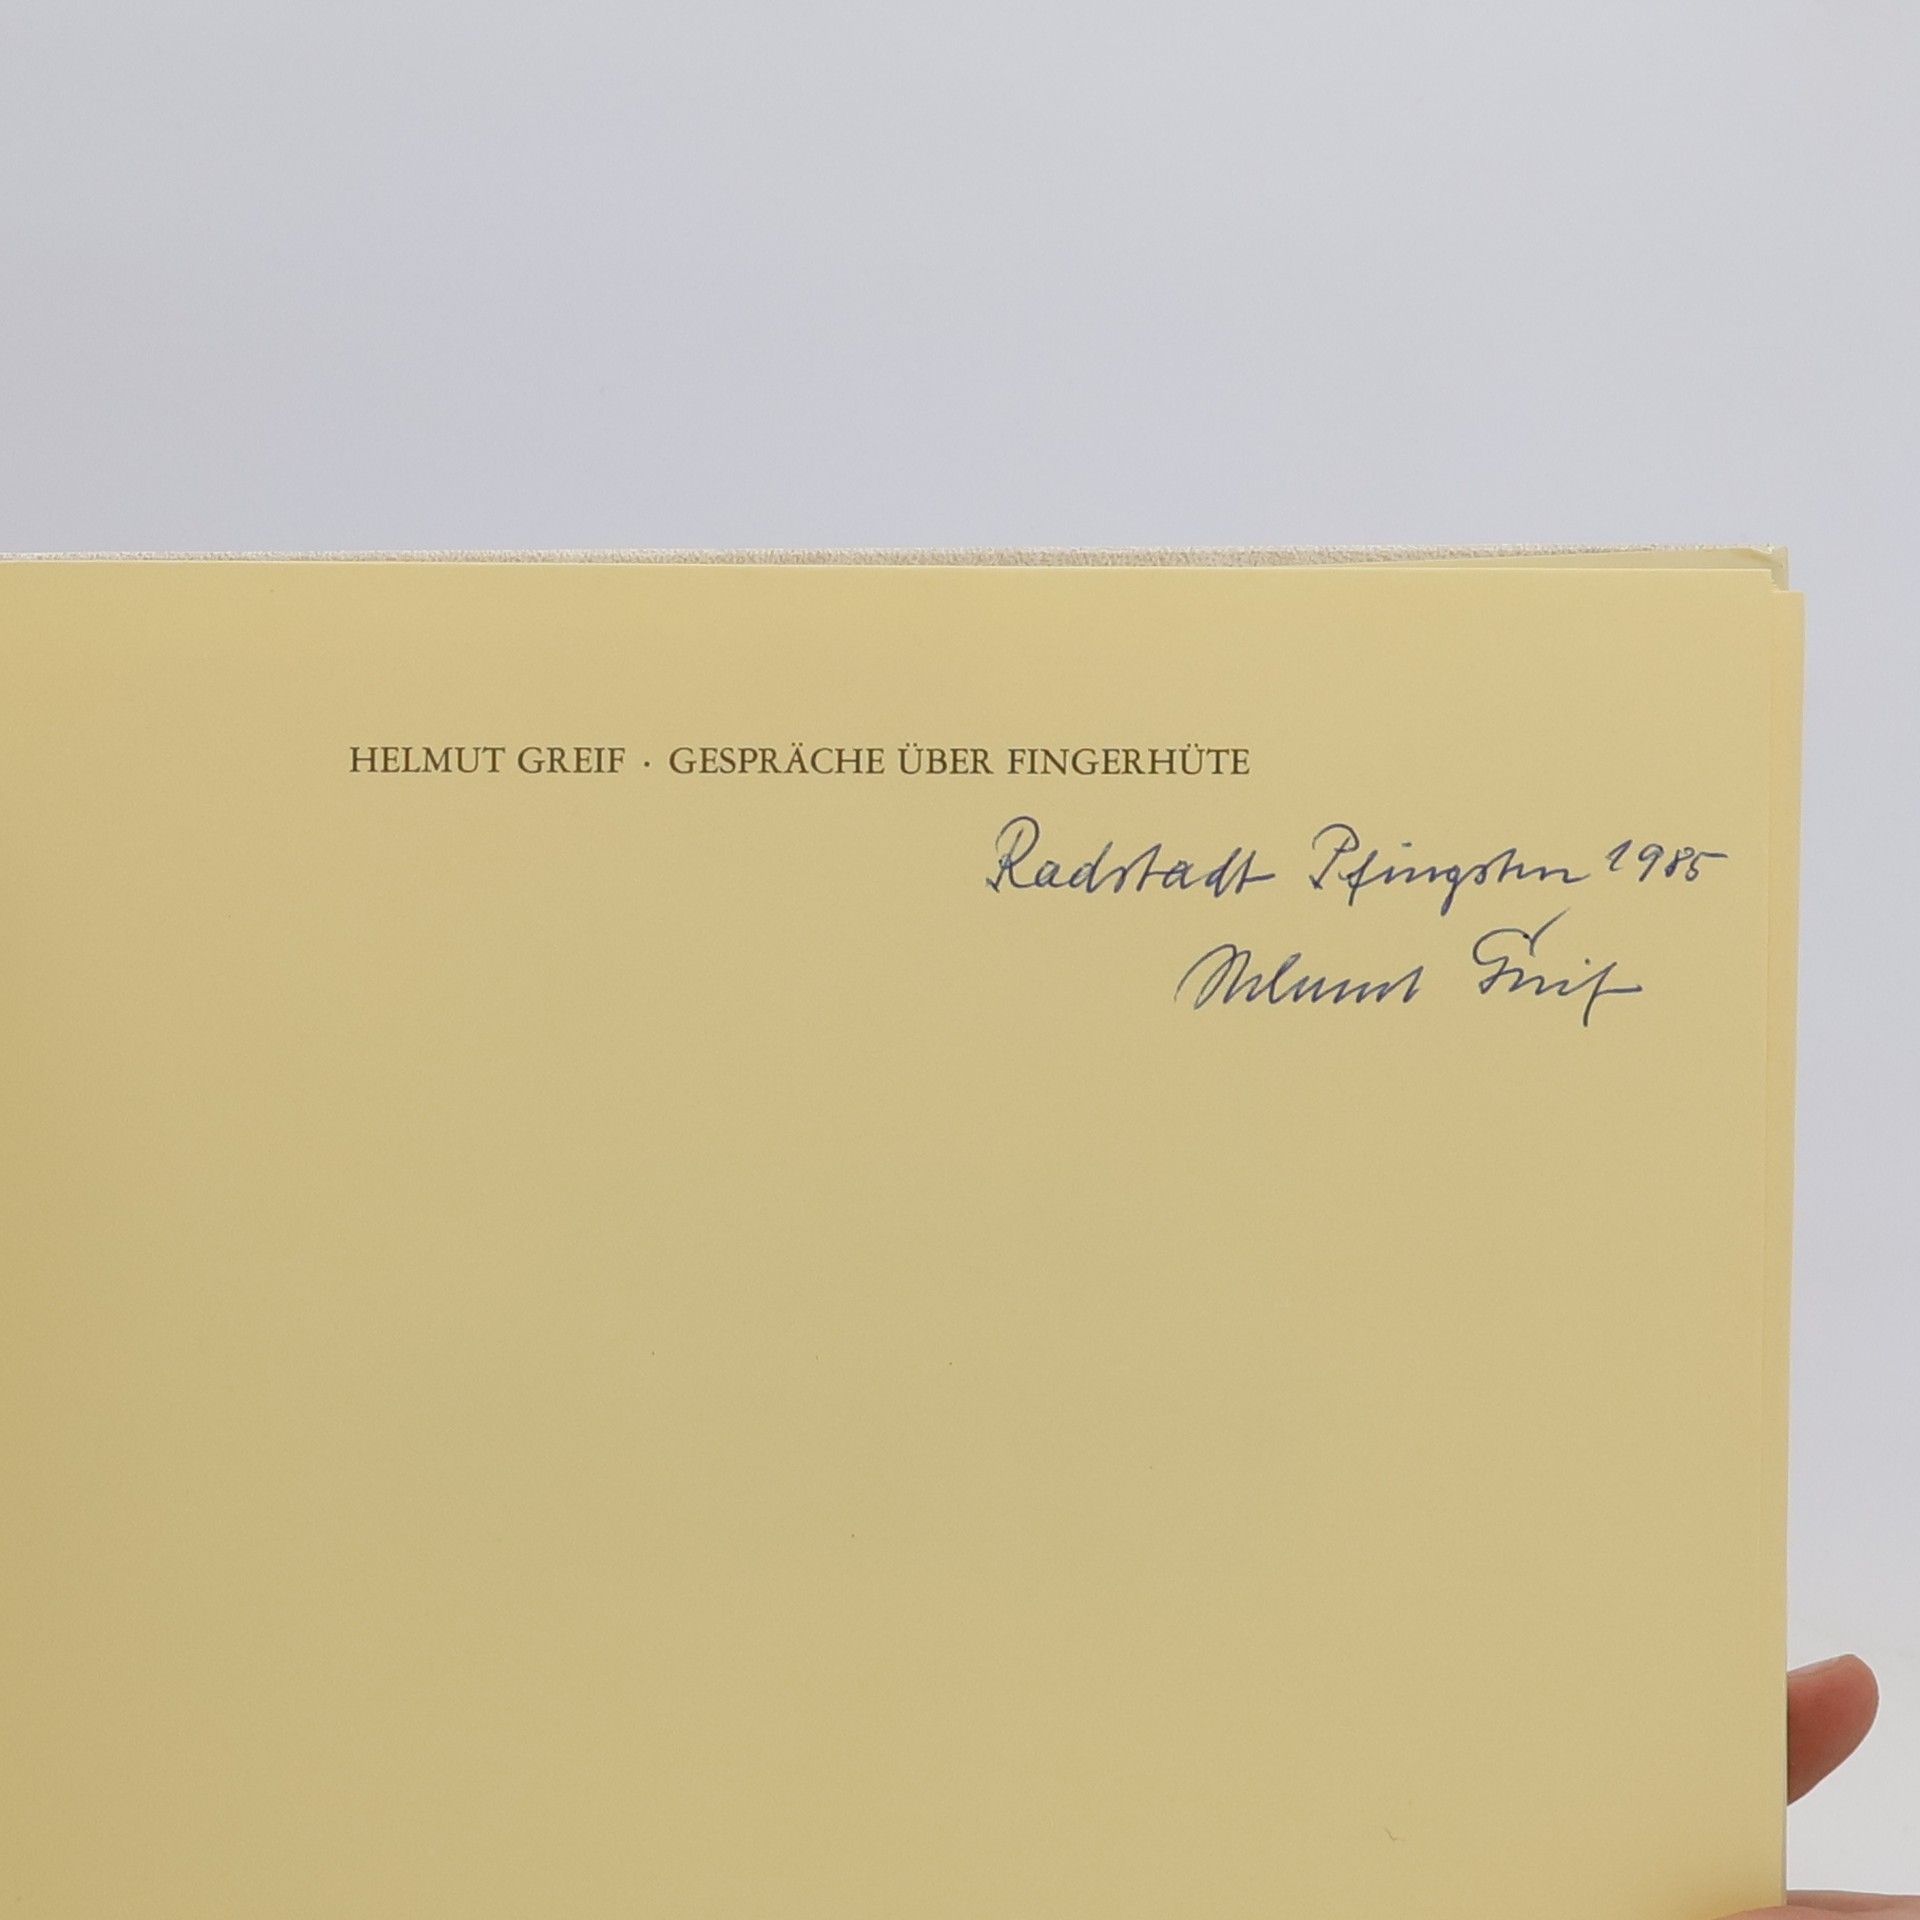 HELMUT GREIF · GESPRÄCHE ÜBER FINGERHÜTE
Radstadt Pfingsten 1985
Helmut Greif